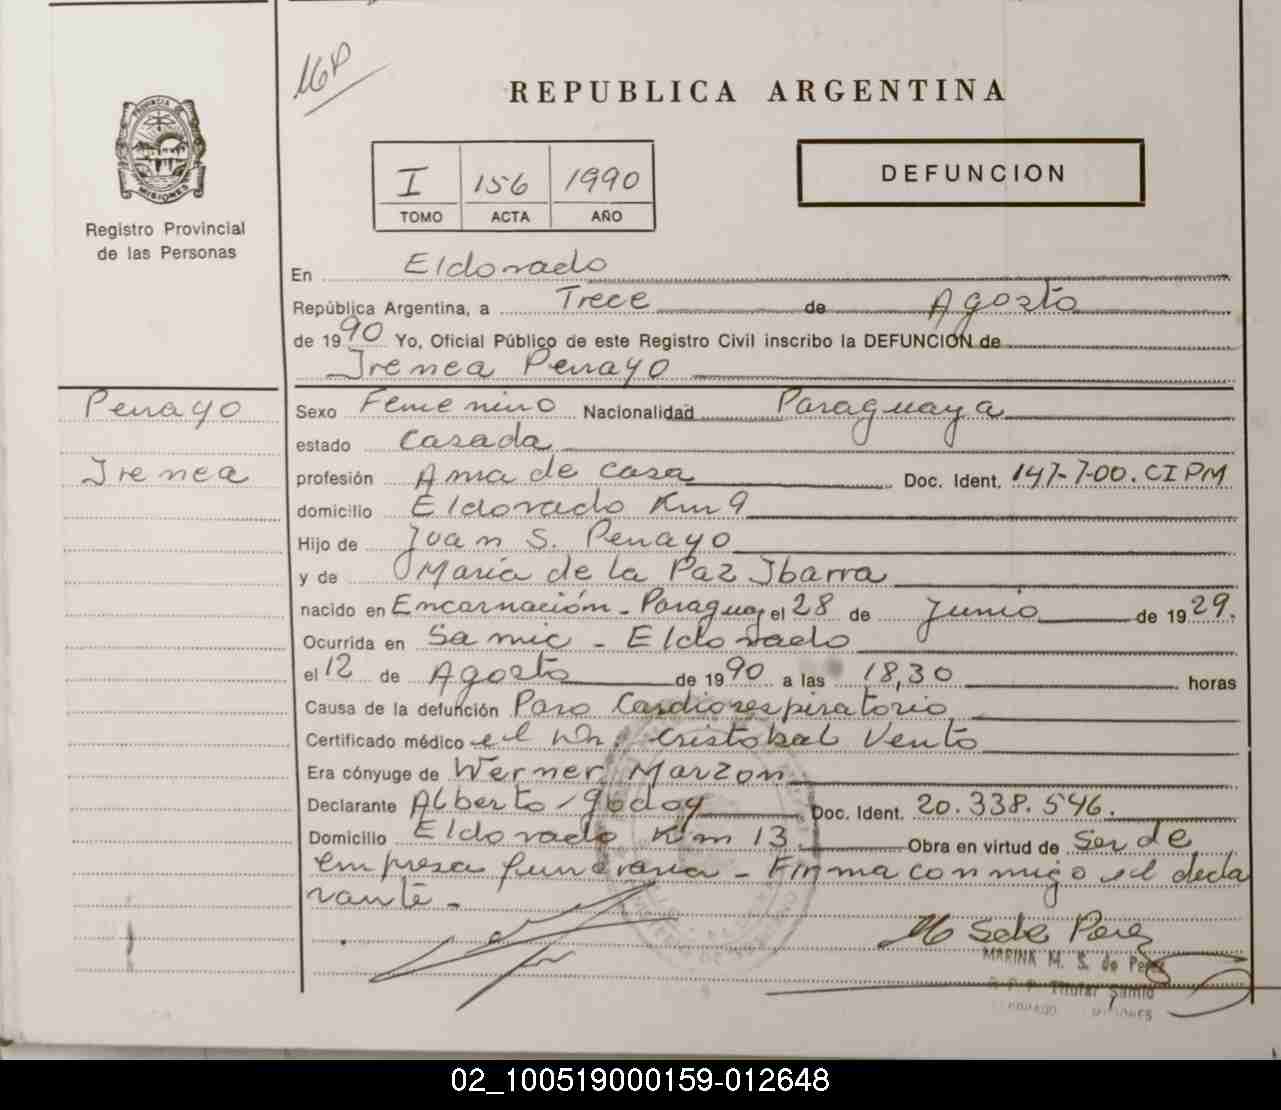 MGP
REPUBLICA ARGENTINA
PROVINCIA DE
MISIONES
Registro Provincial
de las Personas
I 156 1990
TOMO ACTA AÑO
DEFUNCION
En Eldorado
República Argentina, a Trece de Agosto
de 1990 Yo, Oficial Público de este Registro Civil inscribo la DEFUNCION de
Irenea Penayo
Penayo
Irenea
Sexo Femenino Nacionalidad Paraguaya
estado Casada
profesión Ama de casa Doc. Ident. 147-700. CI PM
domicilio Eldorado Km 9
Hijo de Juan S. Penayo
y de María de la Paz Ibarra
nacido en Encarnación - Paraguay el 28 de Junio de 1929.
Ocurrida en Samic - Eldorado
el 12 de Agosto de 1990 a las 18,30 horas
Causa de la defunción Paro Cardiorespiratorio
Certificado médico el Dr. Cristobal Vento
Era cónyuge de Werner Marzon
Declarante Alberto Godoy Doc. Ident. 20.338.546.
Domicilio Eldorado Km 13 Obra en virtud de Ser de
empresa funeraria - Firma conmigo el decla
rante -
MARINA M. S. de Perez
Titular Samic
02_100519000159-012648